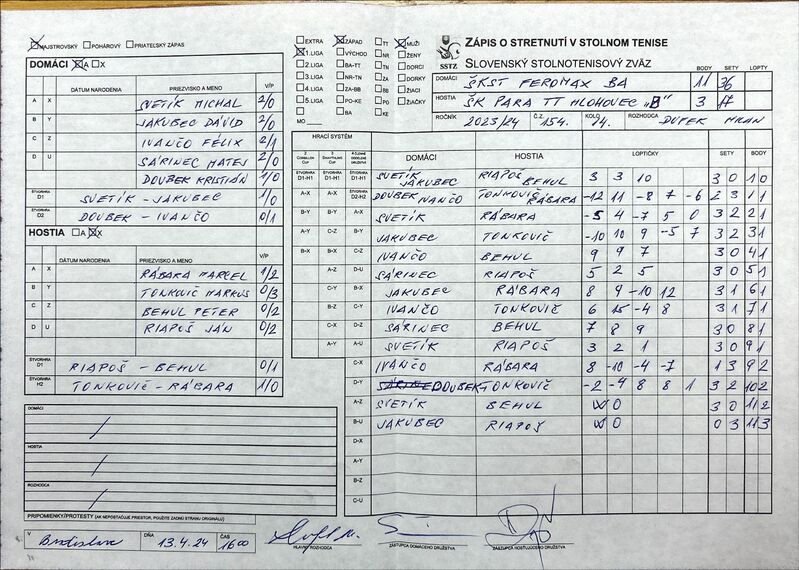 MAJSTROVSKÝ POHÁROVÝ PRIATEĽSKÝ ZÁPAS
EXTRA ZÁPAD TT MUŽI
1.LIGA VÝCHOD NR ŽENY
2.LIGA BA-TT TN DORCI
3.LIGA NR-TN ZA DORKY
4.LIGA ZA-BB BB ŽIACI
5.LIGA PO-KE PO ŽIAČKY
MO BA KE
SSTZ
ZÁPIS O STRETNUTÍ V STOLNOM TENISE
SLOVENSKÝ STOLNOTENISOVÝ ZVÄZ
BODY SETY LOPTY
DOMÁCI ŠKST FEROMAX BA 11 36
HOSTIA ŠK PARA TT HLOHOVEC "B" 3
ROČNÍK 2023/24 Č.Z. 154. KOLO 14. ROZHODCA DUFEK MILAN
DOMÁCI A X
DÁTUM NARODENIA PRIEZVISKO A MENO V/P
A X SVETÍK MICHAL 2/0
B Y JAKUBEC DÁVID 2/0
C Z IVANČO FÉLIX 2/1
D U SÁRINEC MATEJ 2/0
DOUBEK KRISTIÁN 1/0
ŠTVORHRA D1 SVETÍK - JAKUBEC 1/0
ŠTVORHRA D2 DOUBEK - IVANČO 0/1
HOSTIA A X
DÁTUM NARODENIA PRIEZVISKO A MENO V/P
A X RÁBARA MARCEL 1/2
B Y TONKOVIČ MARKUS 0/3
C Z BEHUL PETER 0/2
D U RIAPOŠ JÁN 0/2
ŠTVORHRA D1 RIAPOŠ - BEHUL 0/1
ŠTVORHRA H2 TONKOVIČ - RÁBARA 1/0
DOMÁCI
HOSTIA
ROZHODCA
PRIPOMIENKY/PROTESTY (AK NEPOSTAČUJE PRIESTOR, POUŽITE ZADNÚ STRANU ORIGINÁLU)
HRACÍ SYSTÉM
DOMÁCI HOSTIA LOPTIČKY SETY BODY
D1-H1 D1-H1 D1-H1 SVETÍK JAKUBEC RIAPOŠ BEHUL 3 3 10 3 0 1 0
A-X A-X D2-H2 DOUBEK IVANČO TONKOVIČ RÁBARA -12 11 -8 7 -6 2 3 1 1
B-Y B-Y A-X SVETÍK RÁBARA -5 4 -7 5 0 3 2 2 1
A-Y C-Z B-Y JAKUBEC TONKOVIČ -10 10 9 -5 7 3 2 3 1
B-X B-X C-Z IVANČO BEHUL 9 9 7 3 0 4 1
A-Z D-U SÁRINEC RIAPOŠ 5 2 5 3 0 5 1
C-Y B-X JAKUBEC RÁBARA 8 9 -10 12 3 1 6 1
B-Z C-Y IVANČO TONKOVIČ 6 15 -4 8 3 1 7 1
C-X D-Z SÁRINEC BEHUL 7 8 9 3 0 8 1
A-Y A-U SVETÍK RIAPOŠ 3 2 1 3 0 9 1
C-X IVANČO RÁBARA 8 -10 -4 -7 1 3 9 2
D-Y DOUBEK TONKOVIČ -2 -4 8 8 1 3 2 10 2
A-Z SVETÍK BEHUL W O 3 0 11 2
B-U JAKUBEC RIAPOŠ W O 0 3 11 3
D-X
A-Y
B-Z
C-U
V Bratislave DŇA 13.4.24 ČAS 16 00
HLAVNÝ ROZHODCA ZÁSTUPCA DOMÁCEHO DRUŽSTVA ZÁSTUPCA HOSŤUJÚCEHO DRUŽSTVA